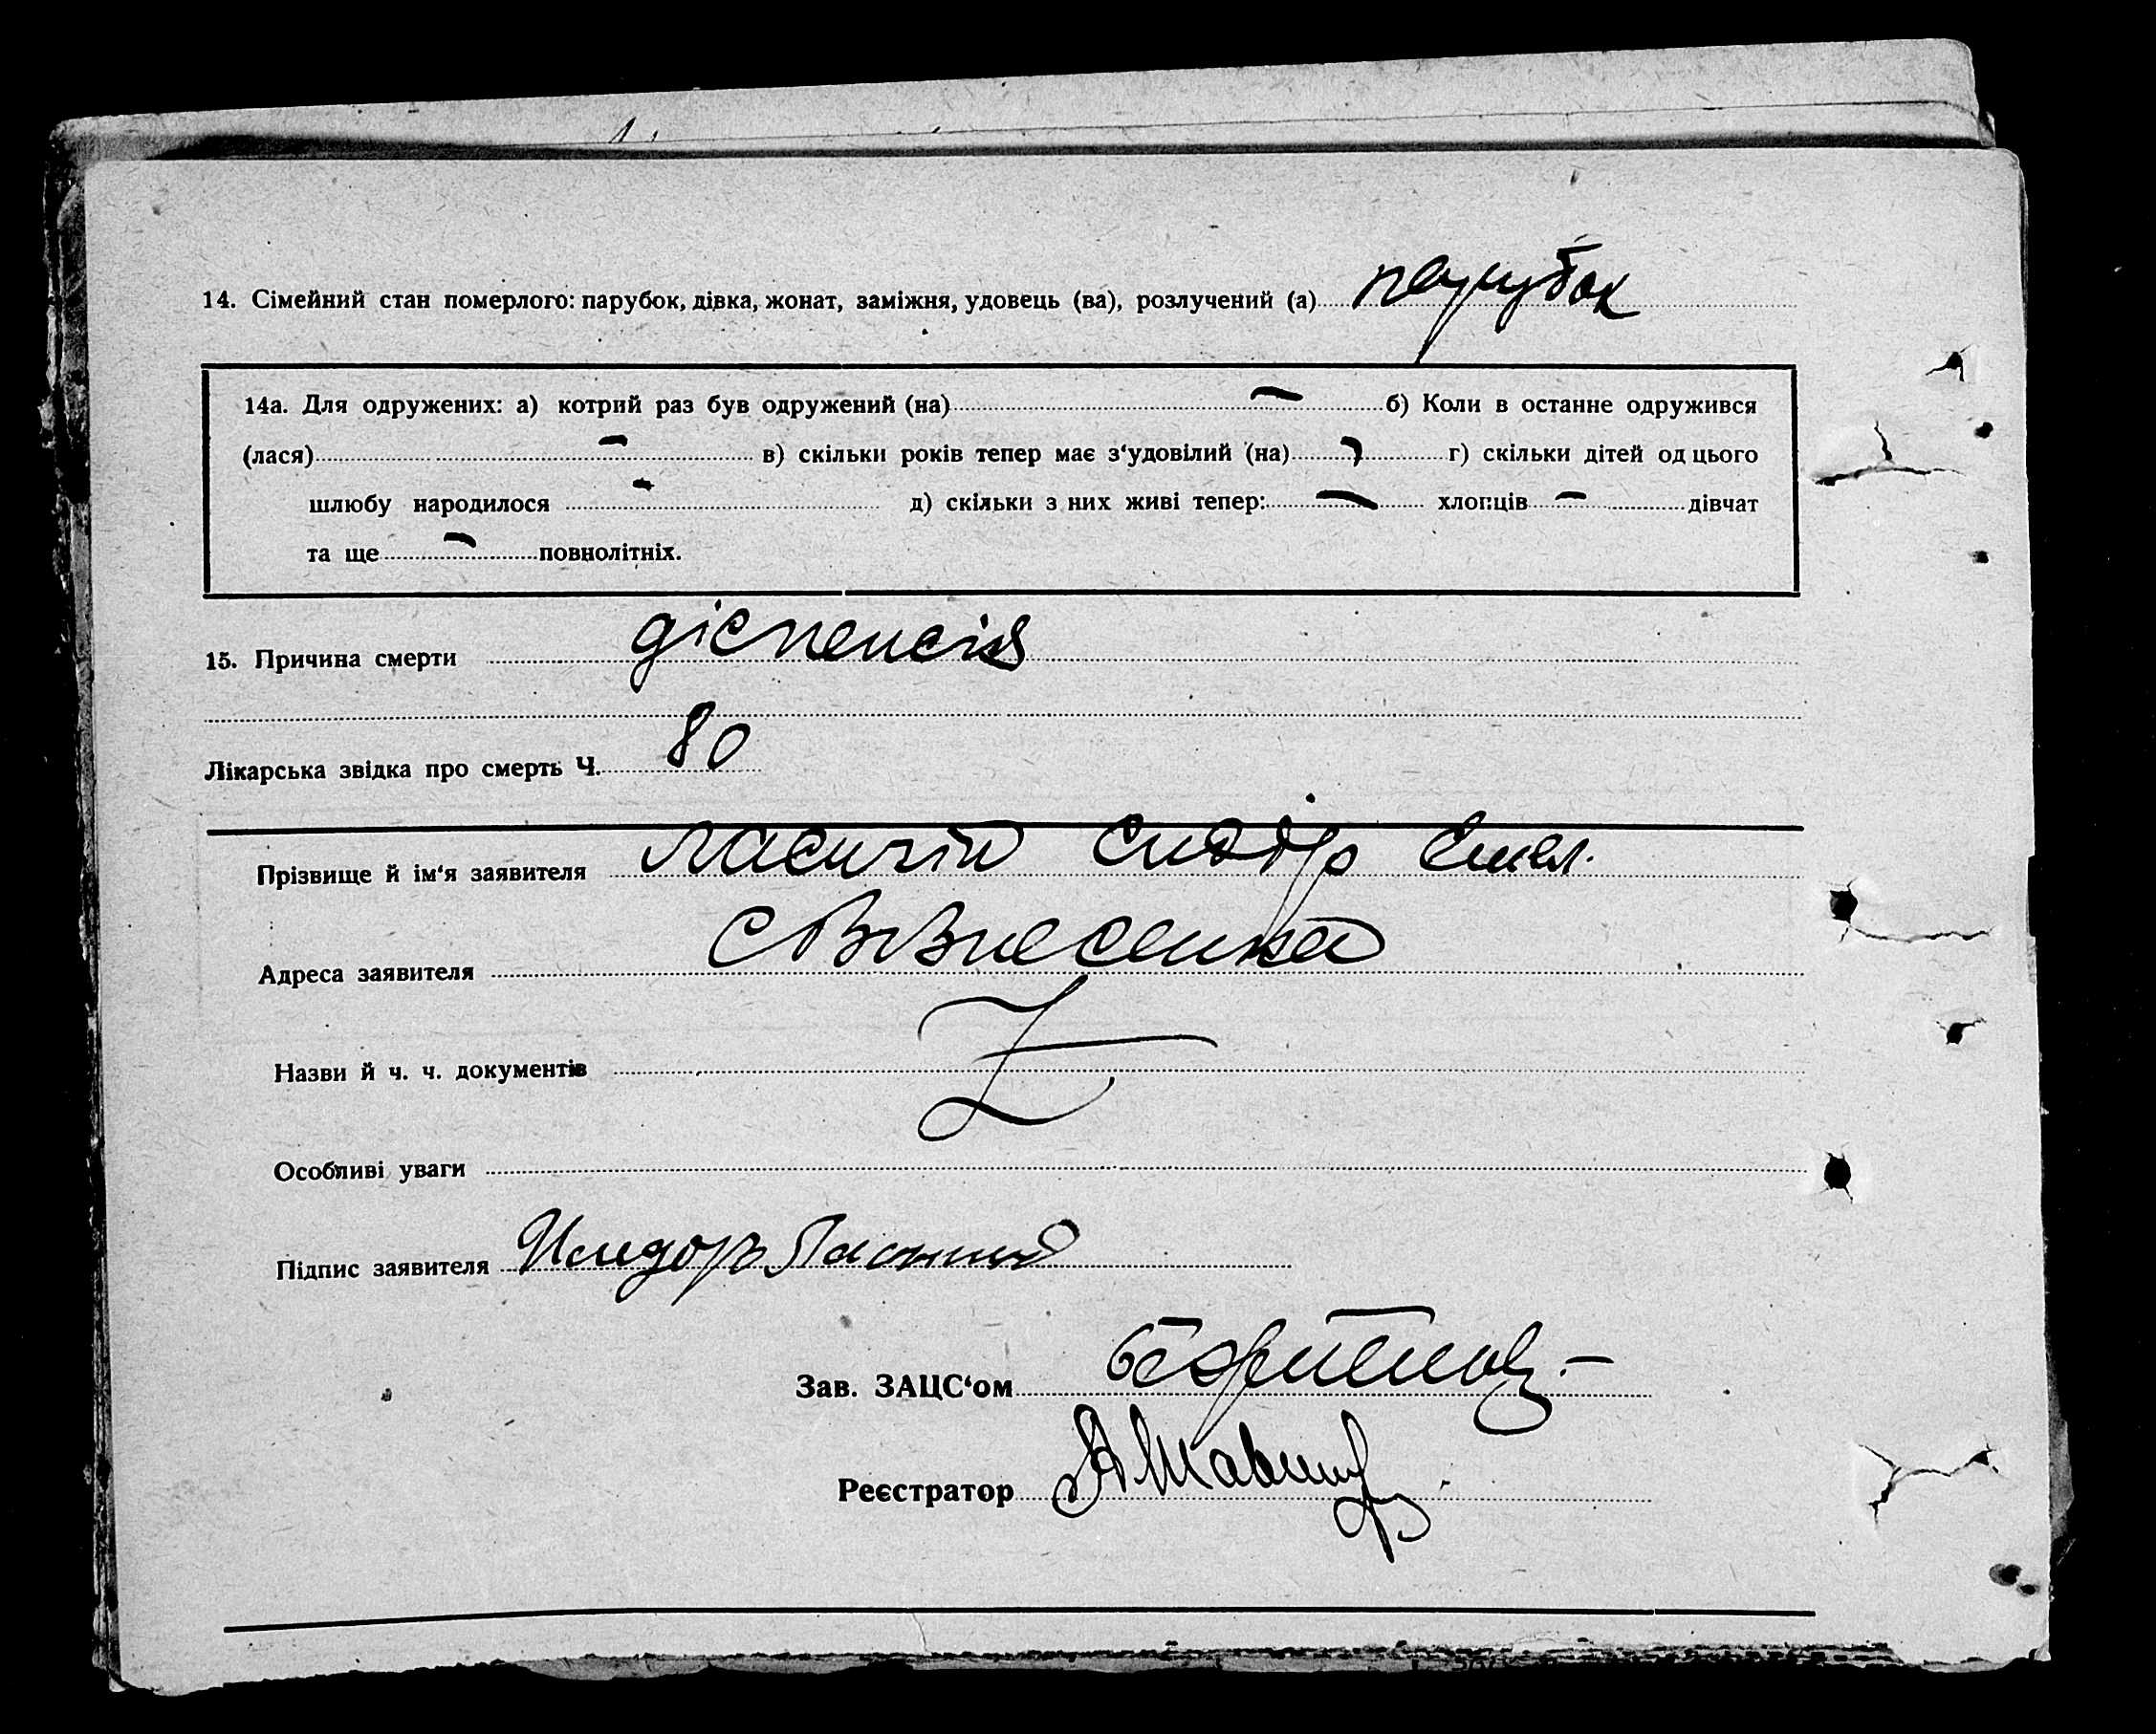 14. Сімейний стан померлого: парубок, дівка, жонат, заміжня, удовець (ва), розлучений (а) парубок
14а. Для одружених: а) котрий раз був одружений (на) — б) Коли в останне одружився
(лася) — в) скільки років тепер має з‘удовілий (на) — г) скільки дітей од цього
шлюбу народилося — д) скільки з них живі тепер: — хлопців — дівчат
та ще — повнолітніх.
15. Причина смерти діспенсія
Лікарська звідка про смерть Ч. 80
Прізвище й ім‘я заявителя Сидір Омел.
Адреса заявителя с Вознесенка
Назви й ч. ч. документів
Особливі уваги
Підпис заявителя Исидор
Зав. ЗАЦС‘ом
Реєстратор